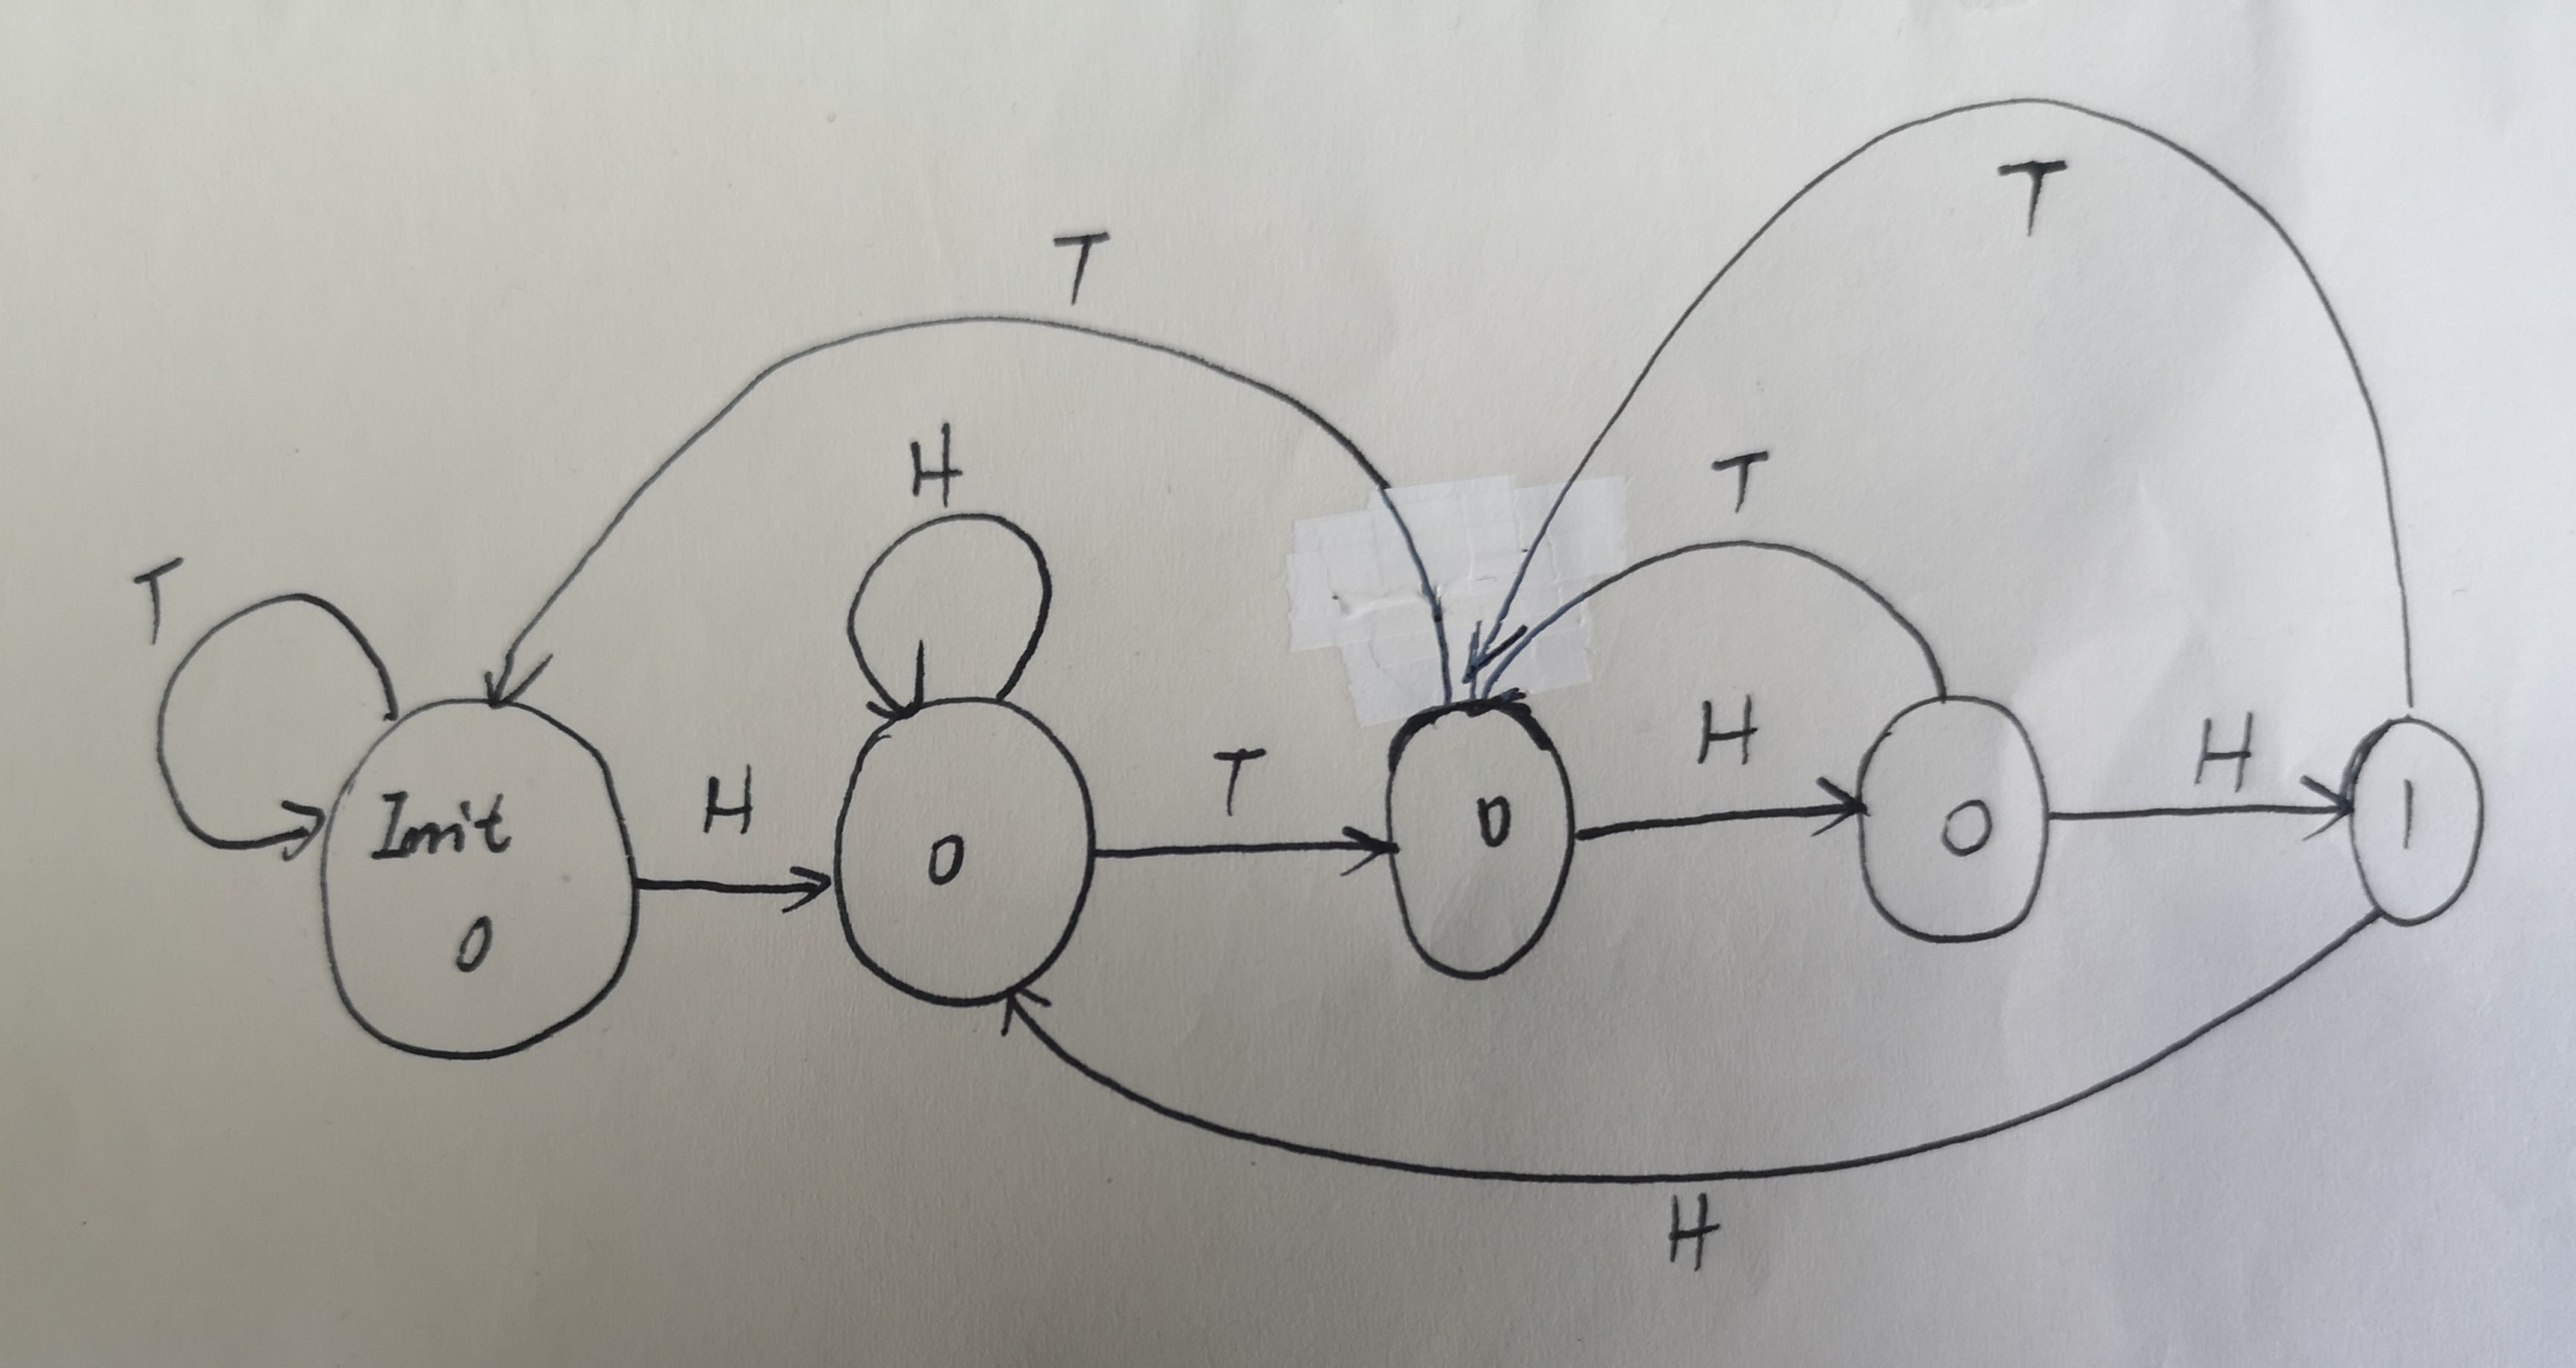 T
T
H
T
T
Init
0
H
0
T
0
H
0
H
1
H